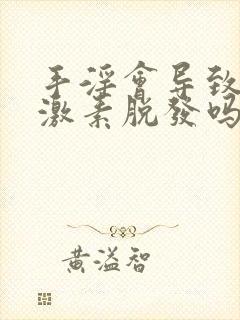 手淫會导致
激素脱發吗
黄溢智